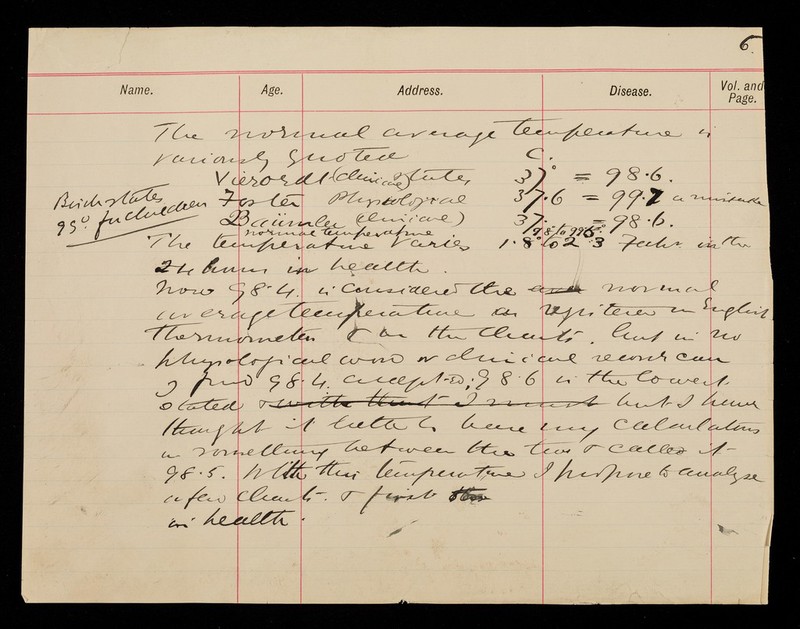 6.
Name. Age. Address. Disease. Vol. and Page.
The normal average temperature is
variously quoted C.
Vierordt (clinical) states 37° = 98.6.
Foster Physiological 37.6 = 99.7
Birch states
99° in children
Bäumler (clinical) 37. = 98.6.
normal temperature 97.8 to 99.5°
The temperature varies 1.8° to 2.3 Fahr in the
24 hours in health.
Now 98.4. is considered the normal
average temperature as registered on English
thermometers & on the charts. but in no
physiological work or clinical records can
I find 98.4. accepted; 98.6 is the lowest
stated & with that I must but I have
thought it better to base my calculations
on something between the two & called it
98.5. With this temperature I propose to analyse
a few charts. & first
in health.